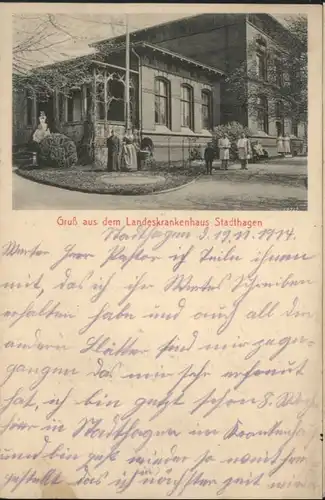 Gruß aus dem Landeskrankenhaus Stadthagen
Stadthagen d. 19.11.1914.
Werter Herr Pastor ich Teile ihnen
mit, das ich ihr Wertes Schreiben
erhalten habe und auch all die
andern Blätter sind mir zuge-
gangen das mir sehr erfreut
hat, ich bin jetzt schon 8
hier in Stadthagen im
und bin jetz wieder so
gestellt das ich nächster zeit